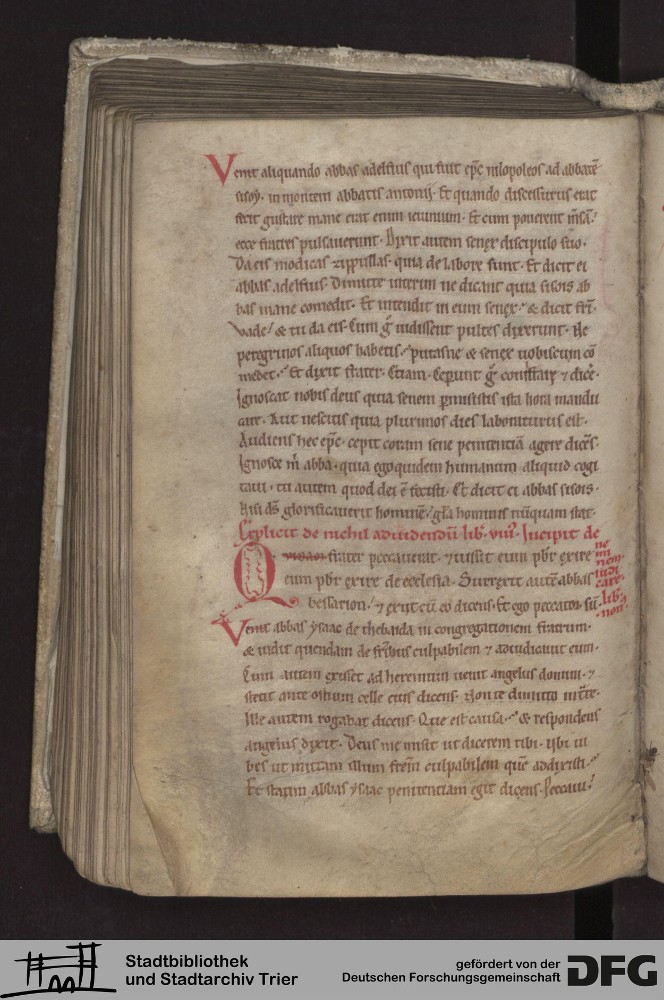 Venit aliquando abbas adelfius qui fuit ep̄c nilopoleos ad abbatē
sisoy. in montem abbatis antonij. Et quando discessurus erat
fecit gustare mane erat enim ieiunium. Et cum ponerent m̄sā.
ecce fratres pulsauerunt. Dixit autem senex discipulo suo.
Da eis modicas zippullas. quia de labore sunt. Et dicit ei
abbas adelfius. Dimitte interim ne dicant quia sisois ab
bas mane comedit. Et intendit in eum senex. & dicit fr̄i.
vade & tu da eis. Cum g̊ uidissent pultes dixerunt. Ne
peregrinos aliquos habetis. putasne & senex uobiscum cō
medet. Et dixit frater. Etiam. Ceperunt g̊ & dicē.
Ignoscat nobis deus quia senem p̄misistis ista hora mandu
care. Aut nescitis quia plurimos dies laboraturus est.
Audiens hec ep̄c. cepit coram sene penitentiā agere dicēs.
Ignosce m̄ abba. quia ego quidem humanum aliquid cogi
taui. tu autem quod dei ē fecisti. Et dicit ei abbas sisois.
Nisi d̄s glorificauerit hominē. gl̄a hominis nūquam stat.
Explicit de nichil adiudendū lib. viiiꝰ. Incipit de
ne
mi
nem
iudi
care.
lib.
non.
Quidam frater peccauerat. & iussit eum pb̄r exire
eum pb̄r exire de ecclesia. Surrexit autē abbas
bessarion. & exiit cū eo dicens. Et ego peccator sū.
Venit abbas ysaac de thebaida in congregationem fratrum.
& uidit quendam de fr̄ibus culpabilem & adiudicauit eum.
Cum autem exisset ad heremum uenit angelus domini. &
stetit ante ostium celle eius dicens. Non te dimitto intrare.
Ille autem rogabat dicens. Que est causa. & respondens
angelus dixit. Deus me misit ut dicerem tibi. ubi iu
bes ut mittam illum fr̄em culpabilem quē addixisti.
Et statim abbas ysaac penitentiam egit dicens. Peccaui.
Stadtbibliothek
und Stadtarchiv Trier
gefördert von der
Deutschen Forschungsgemeinschaft
DFG